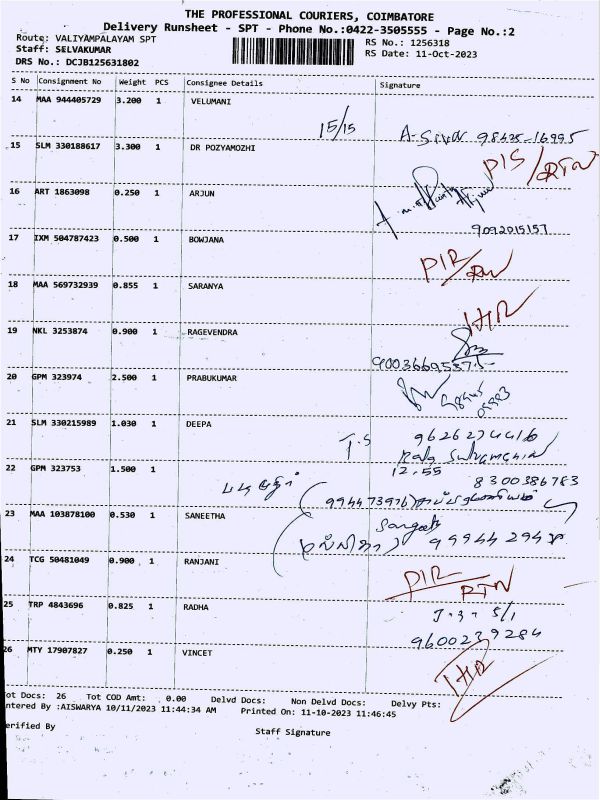 THE PROFESSIONAL COURIERS, COIMBATORE
Delivery Runsheet - SPT - Phone No.:0422-3505555 - Page No.:2
Route: VALIYAMPALAYAM SPT
RS No.: 1256318
Staff: SELVAKUMAR
RS Date: 11-Oct-2023
DRS No.: DCJB125631802
S No Consignment No Weight PCS Consignee Details Signature
14 MAA 944405729 3.200 1 VELUMANI
15/15
15 SLM 330188617 3.300 1 DR POZYAMOZHI
PIS/RTN
16 ART 1863098 0.250 1 ARJUN
9092015157
17 IXM 504787423 0.500 1 BOWJANA
PIR/
18 MAA 569732939 0.855 1 SARANYA
IHR
19 NKL 3253874 0.900 1 RAGEVENDRA
20 GPM 323974 2.500 1 PRABUKUMAR
21 SLM 330215989 1.030 1 DEEPA
T.S
22 GPM 323753 1.500 1
12.55
8300386783
23 MAA 103878100 0.530 1 SANEETHA
24 TCG 50481049 0.900 1 RANJANI
PIR/RTN
25 TRP 4843696 0.825 1 RADHA
9600239284
26 MTY 17907827 0.250 1 VINCET
IHR
Tot Docs: 26 Tot COD Amt: 0.00 Delvd Docs: Non Delvd Docs: Delvy Pts:
ntered By :AISWARYA 10/11/2023 11:44:34 AM Printed On: 11-10-2023 11:46:45
erified By
Staff Signature